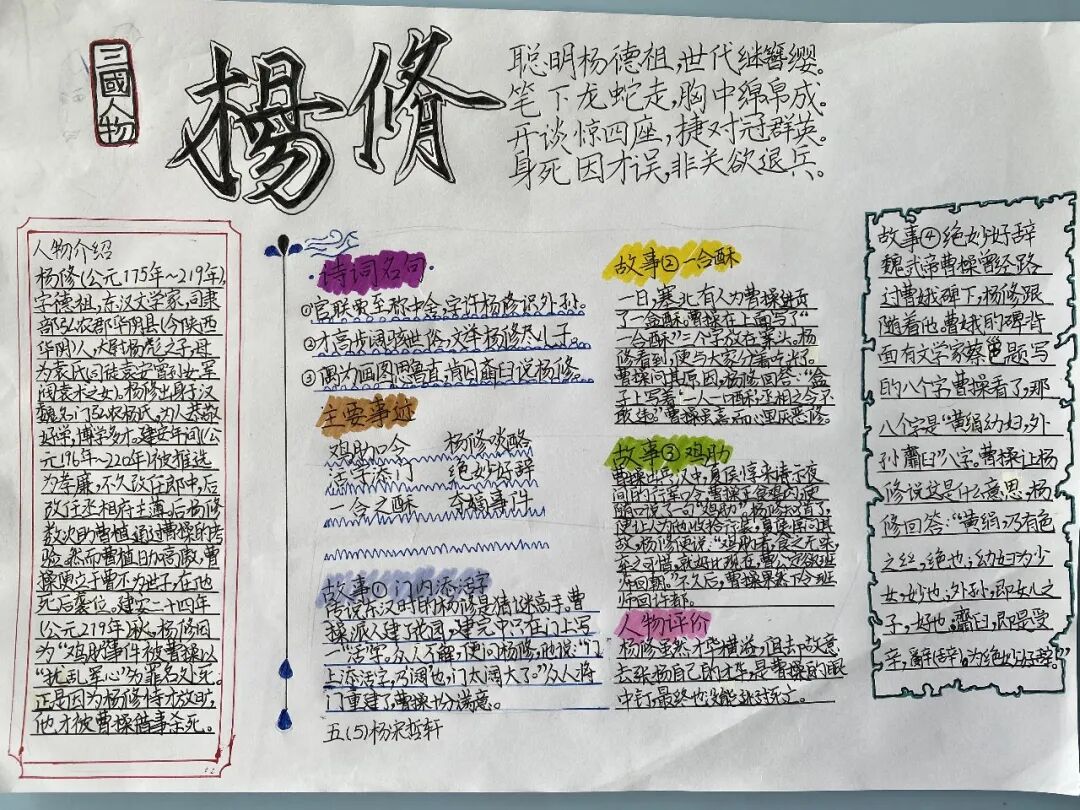 三國人物
楊修
聪明杨德祖,世代继簪缨。
笔下龙蛇走,胸中绵帛成。
开谈惊四座,捷对冠群英。
身死因才误,非关欲退兵。
人物介绍
杨修(公元175年~219年),
字德祖,东汉文学家,司隶
部弘农郡华阴县(今陕西
华阴)人,太尉杨彪之子,母
为袁氏(司徒袁安曾孙女,
闾袁术之女)。杨修出身于汉
魏名门弘农杨氏,为人恭敬
好学,博学多才。建安年间(公
元196年~220年)被推选
为孝廉,不久改任郎中,后
改任丞相府主簿。后杨修
数次助曹植通过曹操的考
验。然而曹植日加高傲,曹
操便立于曹丕为世子,在他
死后袭位。建安二十四年
(公元219年)秋。杨修因
为“鸡肋”事件被曹操以
“扰乱军心”为罪名处死。
正是因为杨修恃才放旷,
他才被曹操借事杀死。
诗词名句
①官联要至称中舍,字许杨修识外孙。
②才高步阔骇世俗,文举杨修尽小子。
③
主要事迹
鸡肋口令 杨修啖酪
活字添门 绝妙好辞
一合之酥
故事① 门内添活字
传说东汉时的杨修是猜谜高手。曹
操派人建了花园,建完中只在门上写
一“活”字。众人不解,便问杨修,他说:“门
上添活字,乃阔也,门太阔大了。”众人将
门重建了,曹操十分满意。
五(5)杨宋哲轩
故事② 一合酥
一日,塞北有人为曹操进贡
了一盒酥,曹操在上面写了“
一合酥”三个字放在案头。杨
修看到,便与大家分着吃光了
曹操问其原因,杨修回答:“盒
子上写着‘一人一口酥’,丞相之令不
敢违。”曹操虽喜,而心里厌恶修。
故事③ 鸡肋
曹操出兵汉中,夏侯惇来请示夜
间的行军口令,曹操正食鸡肉便
随口说了句“鸡肋”,杨修知道了,
便让人为他收拾行装,夏侯惇问其
故,杨修便说:“鸡肋者,食之无味,
弃之可惜,就好比现在,曹公定欲班
师回朝。”不久后,曹操果然下令班
师回许都。
人物评价
杨修虽然才华横溢,但去故意
去张扬自己的才华,是曹操的眼
中钉,最终也没能逃过死亡。
故事④ 绝妙好辞
魏武帝曹操曾经路
过曹娥碑下,杨修跟
随着他,曹娥的碑背
面有文学家蔡邕题写
的八个字,曹操看了,那
八个字是“黄绢幼妇,外
孙齑臼”八字。曹操让杨
修说这是什么意思,杨
修回答:“黄绢,乃有色
之丝,绝也;幼妇为少
女,妙也;外孙,即女儿之
子,好也。齑臼,即是受
辛,辭(辞)。为绝妙好辞。”